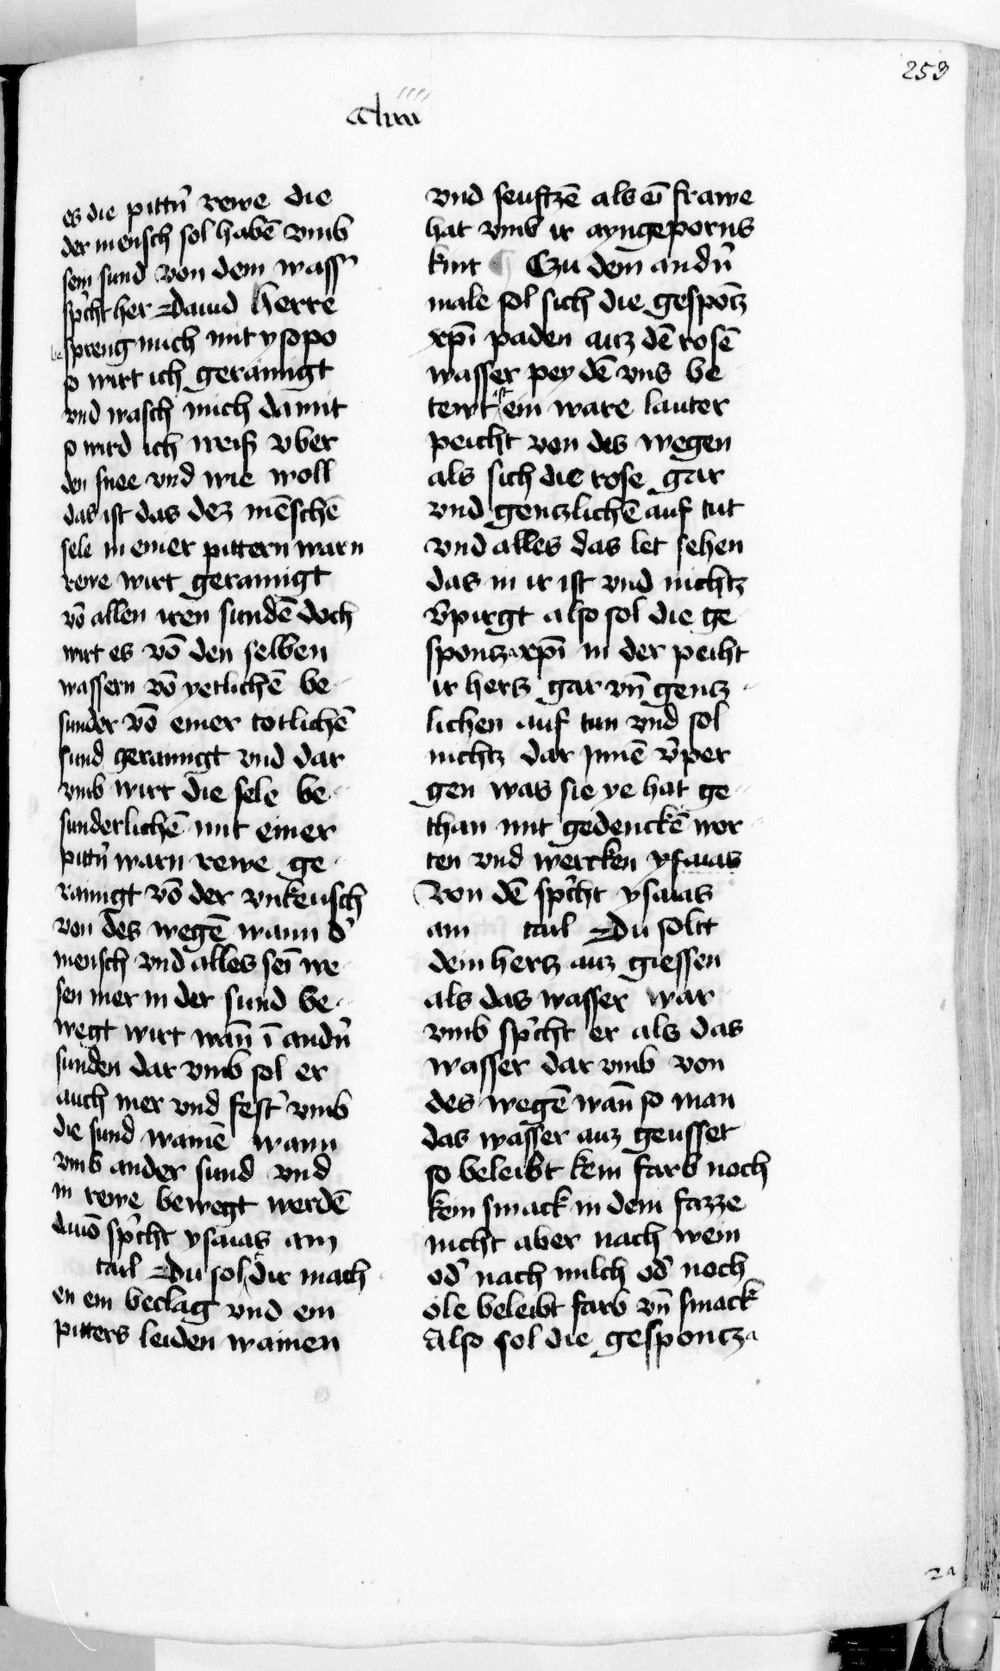 253
es die pittn̄ rewe die
der mensch sol habē vmb
sein sund von dem wass̄
sp̄cht her Dauid herre
spreng mich mit ysopo
so wirt ich gerainigt
vnd wasch mich damit
so wird ich weiß vber
den snee vnd wie woll
das ist das dez mēschē
sele in einer pittern warn
rewe wirt gerainigt
vō allen iren sundē doch
wirt es vō den selben
wassern vō yetlichē be
sunder vō einer totlichē
sund gerainigt vnd dar
vmb wirt die sele be
sunderlichē mit einer
pittn̄ warn rewe ge
rainigt vō der vnkeusch
von des wegē wann d̄
mensch vnd alles sei͞ we
sen mer in der sund be
wegt wirt wan̄ ī andn̄
sunden dar vmb sol er
auch mer vnd fest̄ vmb
die sund wainē wann
vmb ander sund vnd
in rewe bewegt werdē
sp̄cht ysaias am
tail Du sol dir mach
en ein beclag vnd ein
pitters leiden wainen
vnd seuftzē als ei͞ frawe
hat vmb ir ayngeporns
kint Czu dem andn̄
male sol sich die gespōtz
xp̄i paden auz dē rosē
wasser pey dē vns be
tewt ist ein ware lauter
peicht von des wegen
als sich die rose gar
vnd gentzlichē auf tut
vnd alles das let sehen
das in ir ist vnd nichtz
v̄pirgt also sol die ge
spontz xp̄i in der peiht
ir hertz gar vn̄ gentz
lichen auf tun vnd sol
nichtz dar Jnnē v̄per
gen was sie ye hat ge
than mit gedenckē wor
ten vnd wercken ysaias
Von dē sp̄cht ysaias
am tail Du solt
dein hertz auz giessen
als das wasser war
vmb sp̄cht er als das
wasser dar vmb von
des wegē wan̄ so man
das wasser auz geusset
so beleibt kein farb noch
kein smack in dem fazze
nicht aber nach wein
od̄ nach milch od̄ noch
ole beleibt farb vn̄ smack
Also sol die gespontz